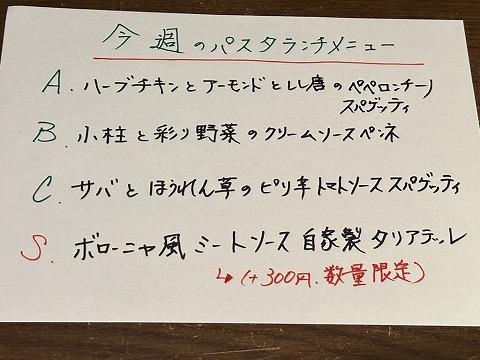 今週のパスタランチメニュー
A. ハーブチキンとアーモンドとしし唐のペペロンチーノ
スパゲッティ
B. 小柱と彩り野菜のクリームソースペンネ
C. サバとほうれん草のピリ辛トマトソーススパゲッティ
S. ボローニャ風ミートソース自家製タリアテッレ
↳(+300円.数量限定)